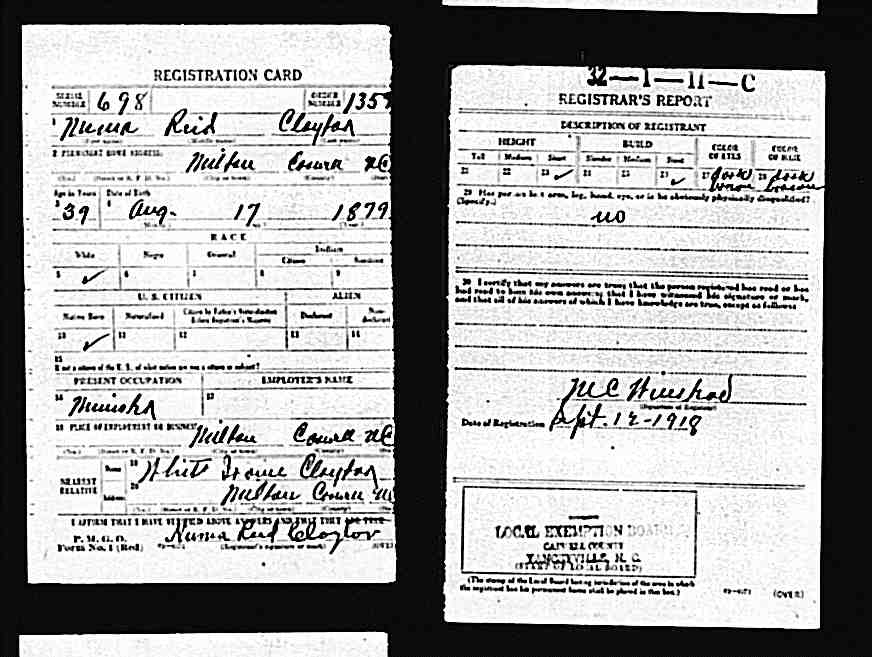 REGISTRATION CARD
SERIAL NUMBER 698 ORDER NUMBER 1359
1 Numa Reid Clayton
(First name) (Middle name) (Last name)
2 PERMANENT HOME ADDRESS:
Milton Caswell NC
(No.) (Street or R. F. D. No.) (City or town) (County)
Age in Years Date of Birth
3 39 4 Aug. 17 1879
(Month.) (Day.) (Year.)
RACE
White Negro Oriental Indian
Citizen Noncitizen
5 ✓ 6 7 8 9
U. S. CITIZEN ALIEN
Native Born Naturalized Citizen by Father's Naturalization Before Registrant's Majority Declarant Non-declarant
10 ✓ 11 12 13 14
15
If not a citizen of the U. S., of what nation are you a citizen or subject?
PRESENT OCCUPATION EMPLOYER'S NAME
16 Minister 17
18 PLACE OF EMPLOYMENT OR BUSINESS:
Milton Caswell NC
(No.) (Street or R. F. D. No.) (City or town) (County)
NEAREST RELATIVE
Name 19 Clayton
Address 20 Milton Caswell NC
(No.) (Street or R. F. D. No.) (City or town) (County)
I AFFIRM THAT I HAVE VERIFIED ABOVE ANSWERS AND THAT THEY ARE TRUE
P. M. G. O.
Form No. 1 (Red) Numa Reid Clayton
(Registrant's signature or mark) (OVER)
32—1—11—C
REGISTRAR'S REPORT
DESCRIPTION OF REGISTRANT
HEIGHT BUILD COLOR OF EYES COLOR OF HAIR
Tall Medium Short Slender Medium Stout
21 22 23 ✓ 24 25 26 ✓ 27 dark brown 28 dark brown
29 Has person lost arm, leg, hand, eye, or is he obviously physically disqualified?
(Specify.)
no
30 I certify that my answers are true; that the person registered has read or has
had read to him his own answers; that I have witnessed his signature or mark,
and that all of his answers of which I have knowledge are true, except as follows:
(Signature of Registrar)
Date of Registration Sept. 12-1918
LOCAL EXEMPTION BOARD
CASWELL COUNTY
YANCEYVILLE, N. C.
(STAMP OF LOCAL BOARD)
(The stamp of the Local Board having jurisdiction of the area in which
the registrant has his permanent home shall be placed in this box.)
(OVER)